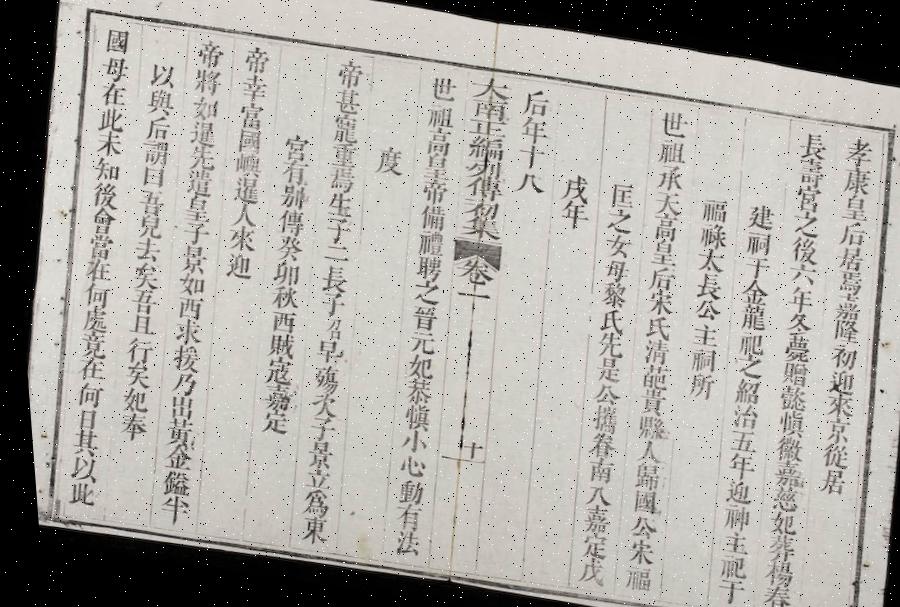 孝康皇后居焉嘉隆初迎來京從居
長壽宮之後六年冬薨贈懿愼徽嘉慈妃葬楊春
建祠于金龍祀之紹治五年迎神主祀于
福祿太長公主祠所
世祖承天高皇后宋氏清葩貴縣人歸國公宋福
匡之女母黎氏先是公攜眷南入嘉定戊
戌年
后年十八
大南正編列傳初集 卷二 十
世祖高皇帝備禮聘之晉元妃恭愼小心動有法
度
帝甚寵重焉生子二長子昭早殤次子景立爲東
宮有別傳癸卯秋西賊寇嘉定
帝幸富國嶼暹人來迎
帝將如暹先遣皇子景如西求援乃出黃金鎰半
以與后謂曰吾兒去矣吾且行矣妃奉
國母在此未知後會當在何處竟在何日其以此